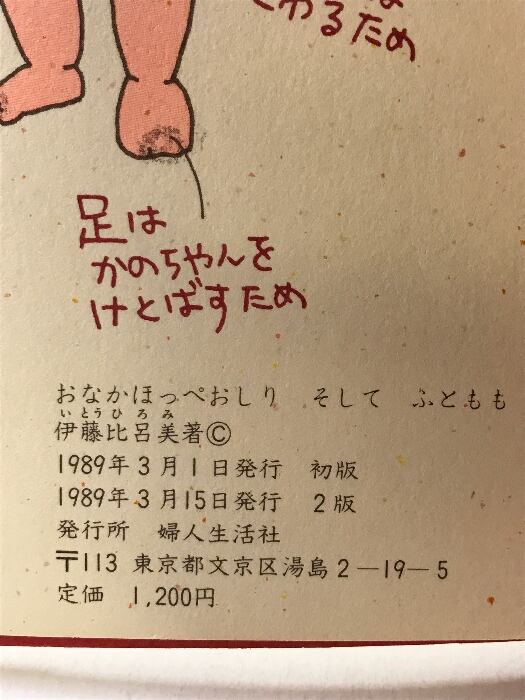 さわるため
足は
かのちゃんを
けとばすため
おなかほっぺおしり　そして　ふともも
いとうひろみ
伊藤比呂美著©
1989年3月1日発行　初版
1989年3月15日発行　2版
発行所　婦人生活社
〒113 東京都文京区湯島2―19―5
定価　1,200円